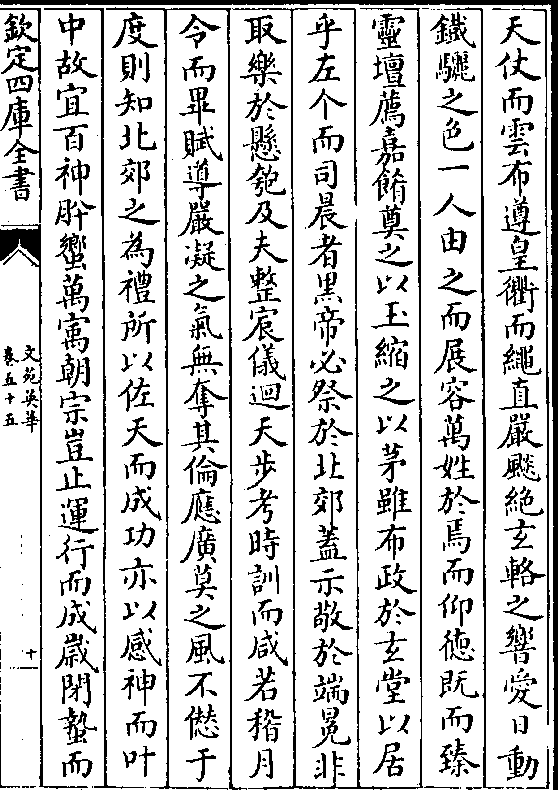 天仗而雲布遵皇衢而繩直嚴飇絶玄輅之響愛日動
鐵驪之色一人由之而展容萬姓於焉而仰德既而臻
靈壇薦嘉餚奠之以玉縮之以茅雖布政於玄堂以居
乎左个而司晨者黒帝必祭於北郊蓋示敬於端冕非
取樂於懸匏及夫整宸儀迴天步考時訓而咸若稽月
令而畢賦導嚴凝之氣無奪其倫應廣莫之風不愆于
度則知北郊之為禮所以佐天而成功亦以感神而叶
中故宜百神肸蠁萬㝢朝宗豈止運行而成嵗閉蟄而
欽定四庫全書
文苑英華
卷五十五
十